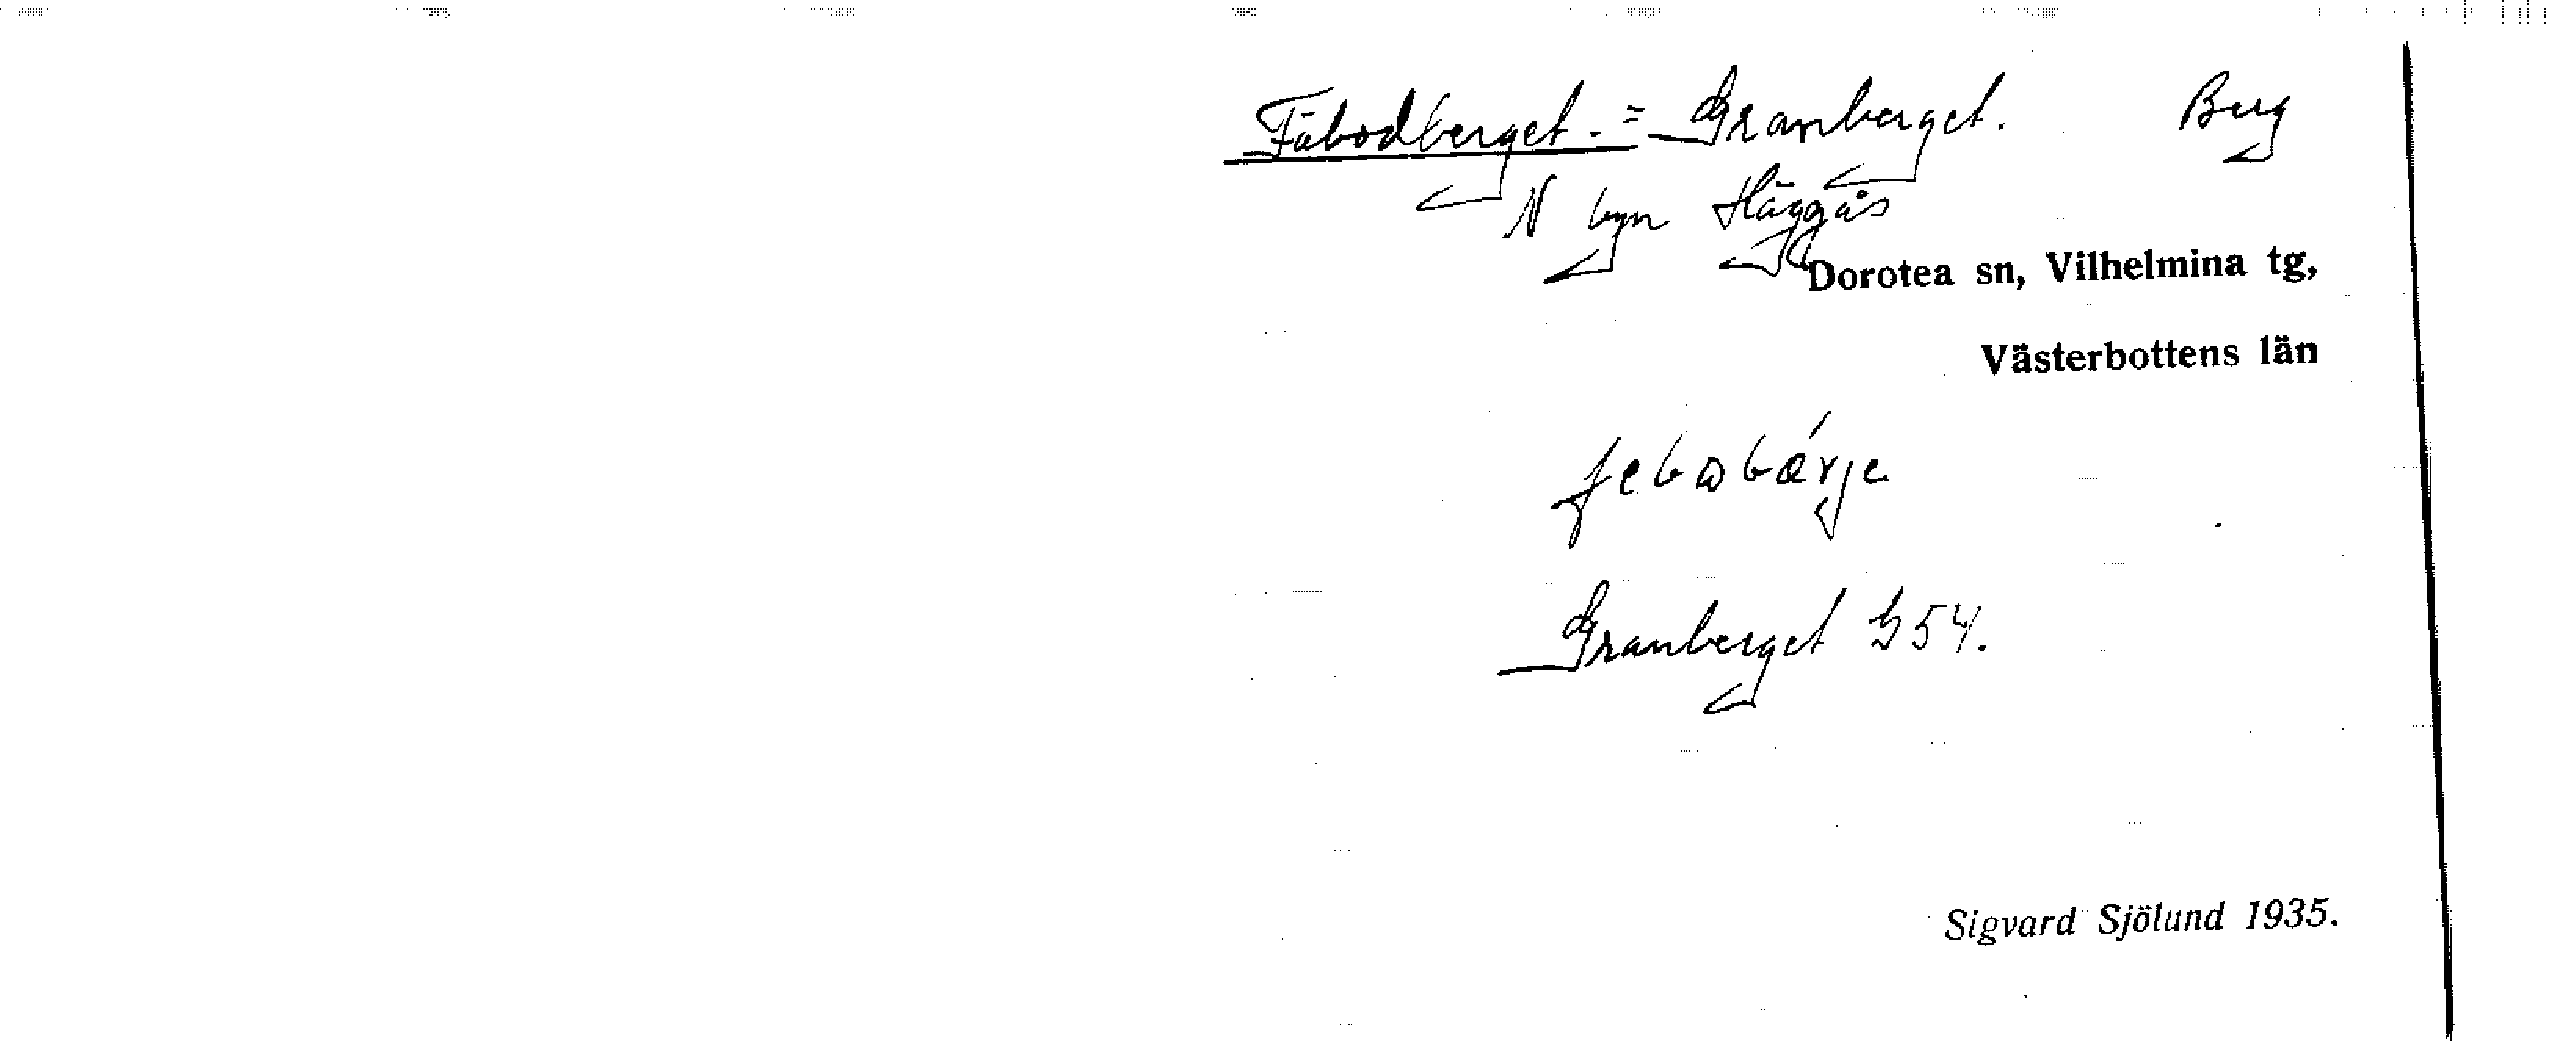 Fäbodberget. = Granberget. Berg
N byn Häggås
Dorotea sn, Vilhelmina tg,
Västerbottens län
febωbǽrje
Granberget G54.
Sigvard Sjölund 1935.